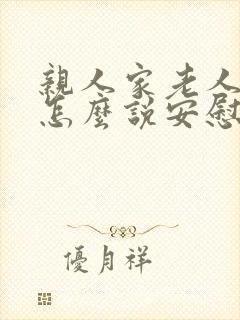 親人家老人
怎麼說安慰
優月祥